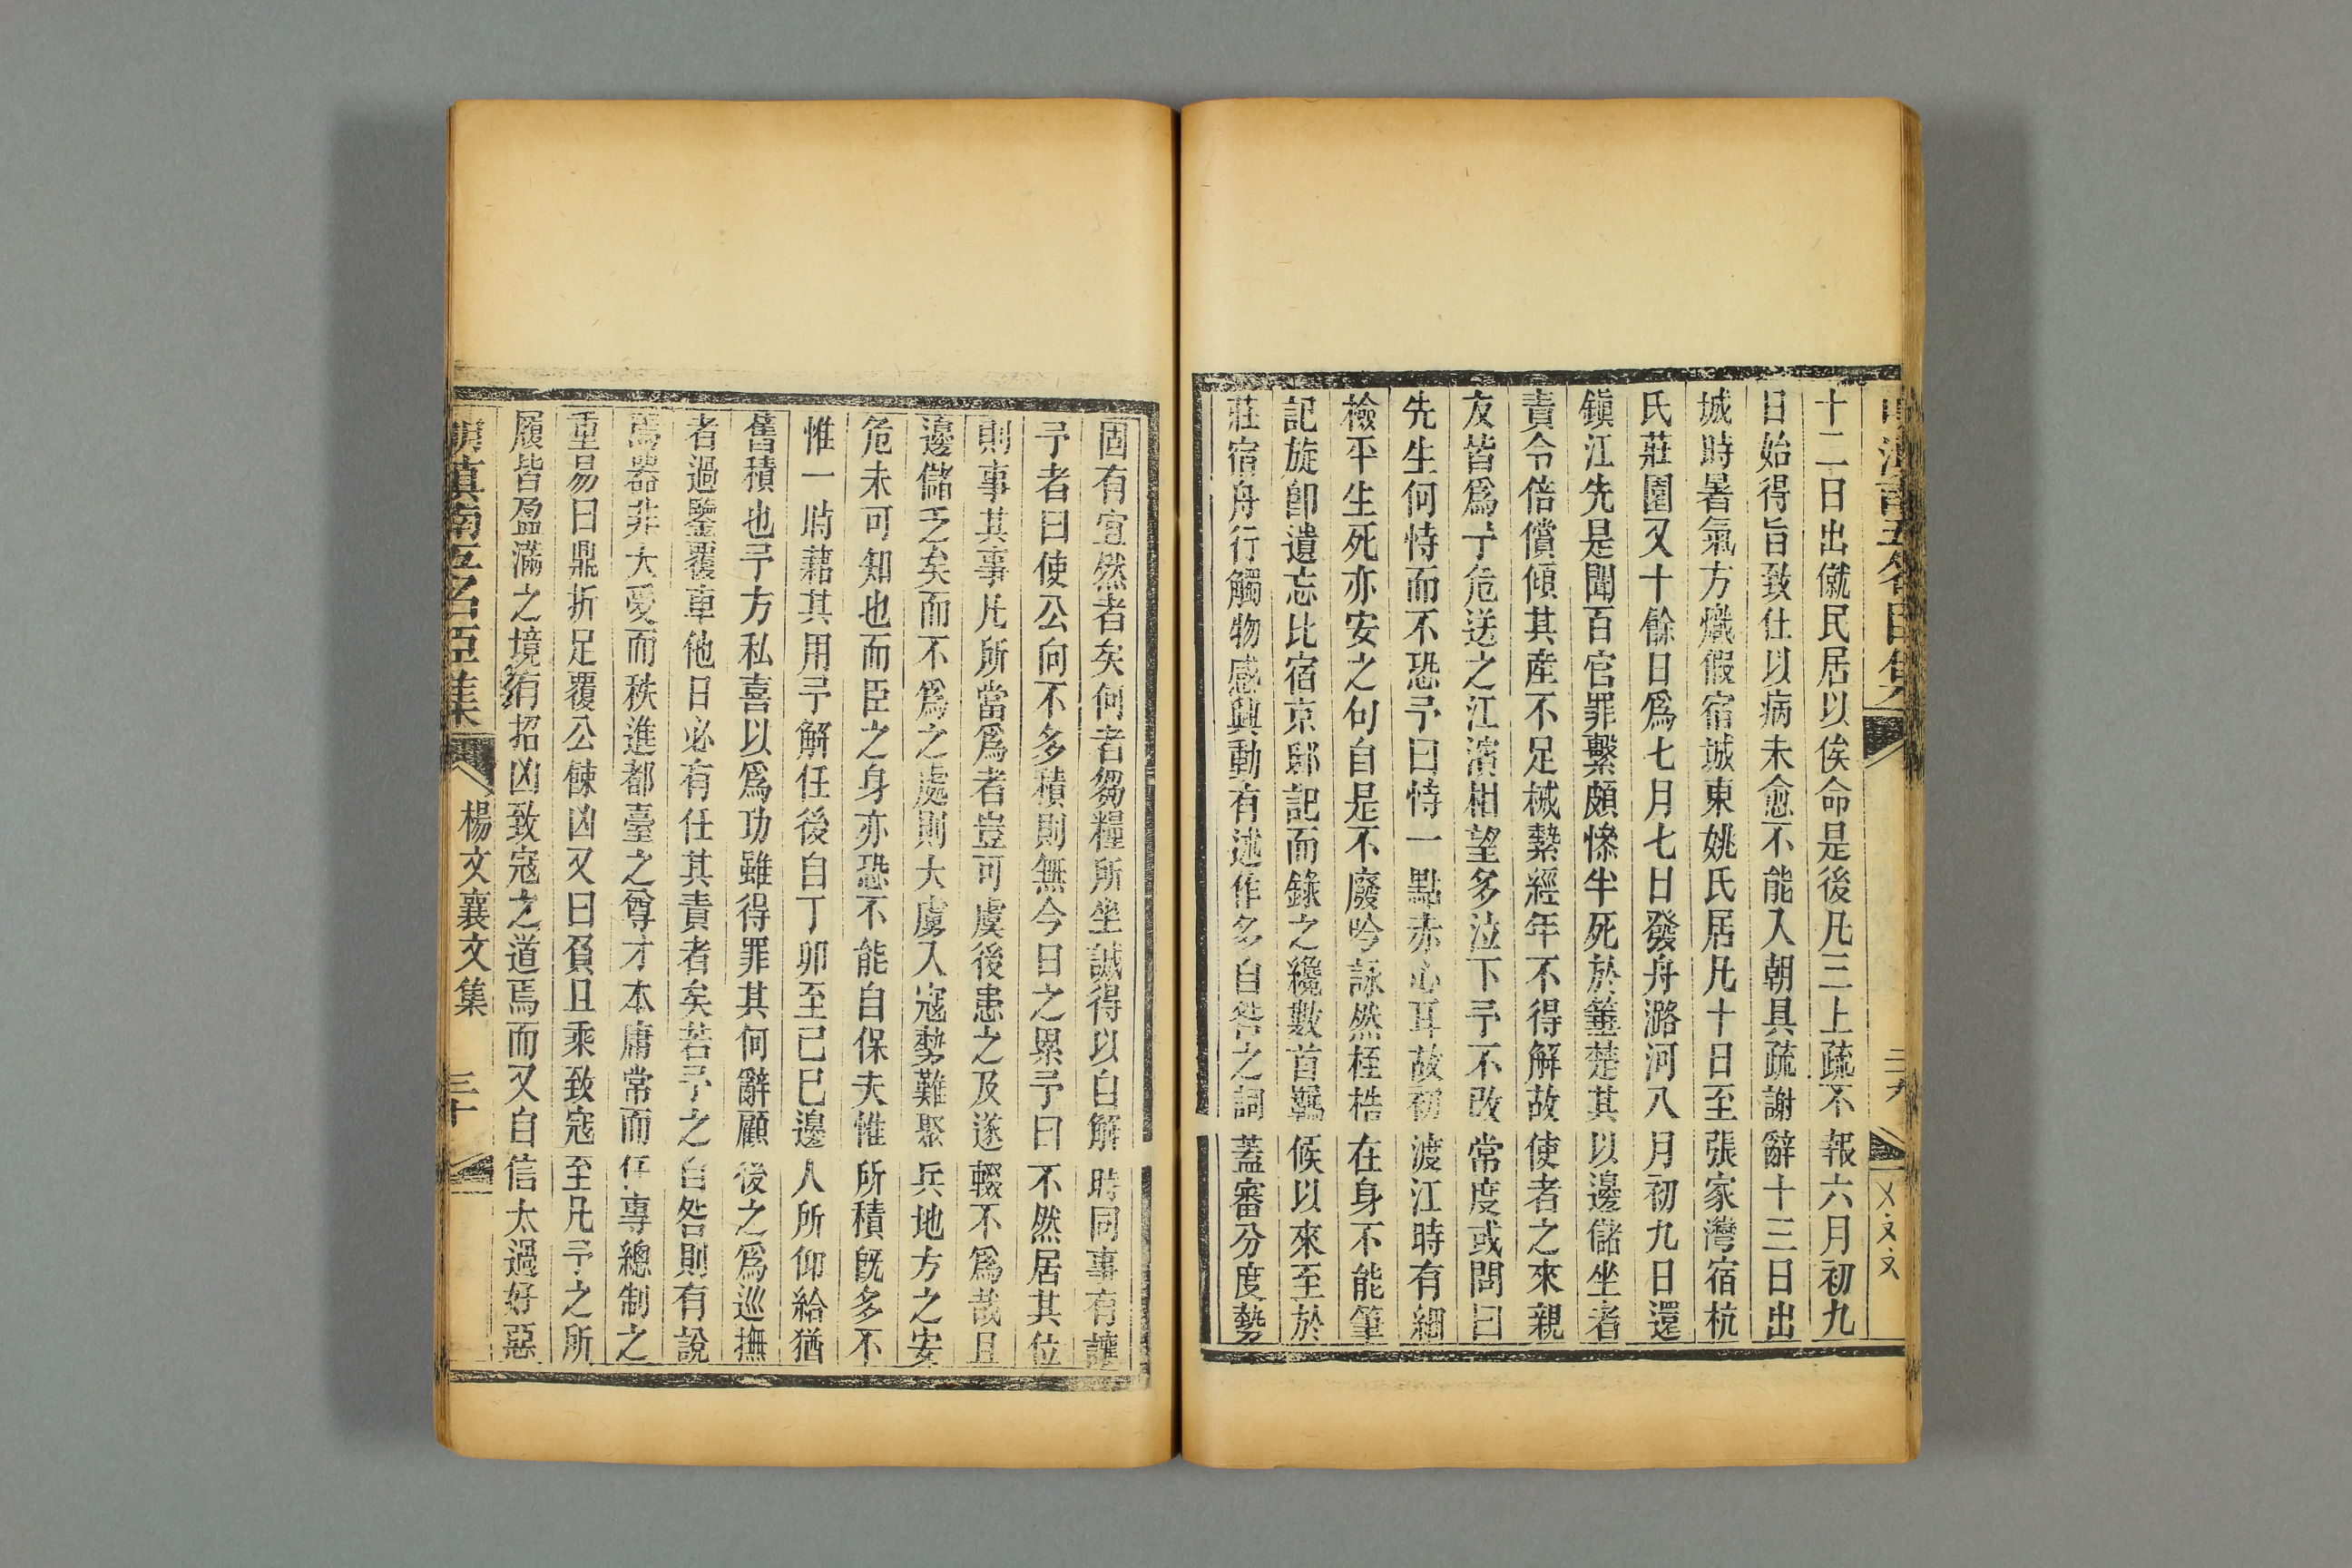 十二日出僦民居以俟命是後凡三上疏不報六月初九
日始得旨致仕以病未愈不能入朝具疏謝辭十三日出
城時暑氣方熾假宿城東姚氏居凡十日至張家灣宿杭
氏莊園又十餘日爲七月七日發舟潞河八月初九日還
鎮江先是聞百官罪繫頗慘半死於箠楚其以邊儲坐者
責令倍償傾其産不足械縶經年不得解故使者之來親
友皆爲予危送之江濱相望多泣下予不改常度或問曰
先生何恃而不恐予曰恃一點赤心耳故初渡江時有細
檢平生死亦安之句自是不廢吟詠然桎梏在身不能筆
記旋卽遺忘比宿京邸記而錄之纔數首羈候以來至於
莊宿舟行觸物感興動有述作多自咎之詞蓋審分度勢
固有宜然者矣何者芻糧所坐誠得以自解時同事有讓
予者曰使公向不多積則無今日之累予曰不然居其位
則事其事凡所當爲者豈可虞後患之及遂輟不爲哉且
邊儲乏矣而不爲之處則大虜入寇勢難聚兵地方之安
危未可知也而臣之身亦恐不能自保夫惟所積旣多不
惟一時藉其用予解任後自丁卯至己巳邊人所仰給猶
舊積也予方私喜以爲功雖得罪其何辭顧後之爲巡撫
者過鑒覆車他日必有任其責者矣若予之自咎則有說
焉器非大受而秩進都臺之尊才本庸常而任專總制之
重易曰鼎折足覆公餗凶又曰負且乘致寇至凡予之所
履皆盈滿之境有招凶致寇之道焉而又自信太過好惡
明滇南五名臣集 楊文襄文集 三十